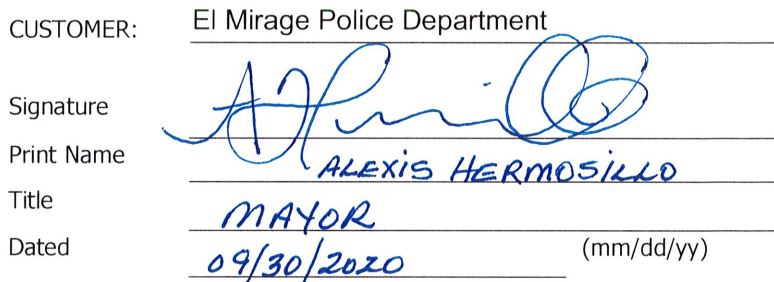 CUSTOMER: El Mirage Police Department
Signature
Print Name ALEXIS HERMOSILLO
Title MAYOR
Dated 09/30/2020 (mm/dd/yy)